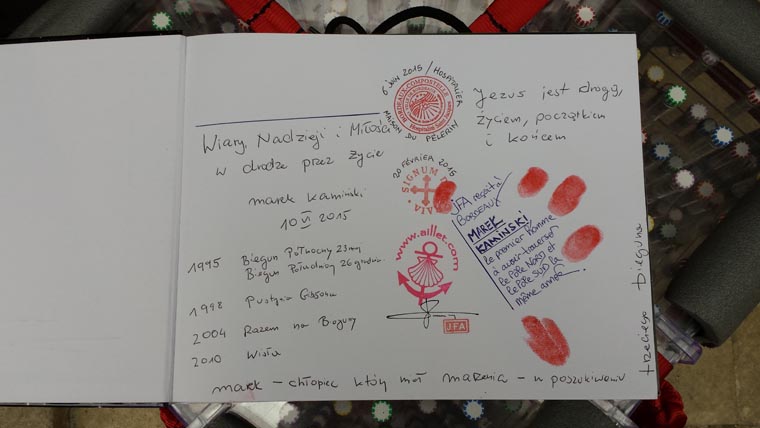 Wiary, Nadzieji i Miłości
w drodze przez życie
marek kamiński
10 VI 2015
1995 Biegun Północny 23 maj
Biegun Południowy 26 grudnia
1998 Pustynia Gibsona
2004 Razem na Bieguny
2010 Wisła
marek - chłopiec który miał marzenia - w poszukiwaniu
trzeciego bieguna
6 juin 2015 / HOSPITALIER
MAISON DU PELERIN
BORDEAUX-COMPOSTELLE
20 FÉVRIER 2015
SIGNUM
VIA
www.aillet.com
JFA
Jezus jest drogą,
życiem, początkiem
i końcem
JFA
BORDEAUX
MAREK
KAMIŃSKI
le premier homme
à avoir traversé
le Pôle Nord et
le Pôle SUD la
même année